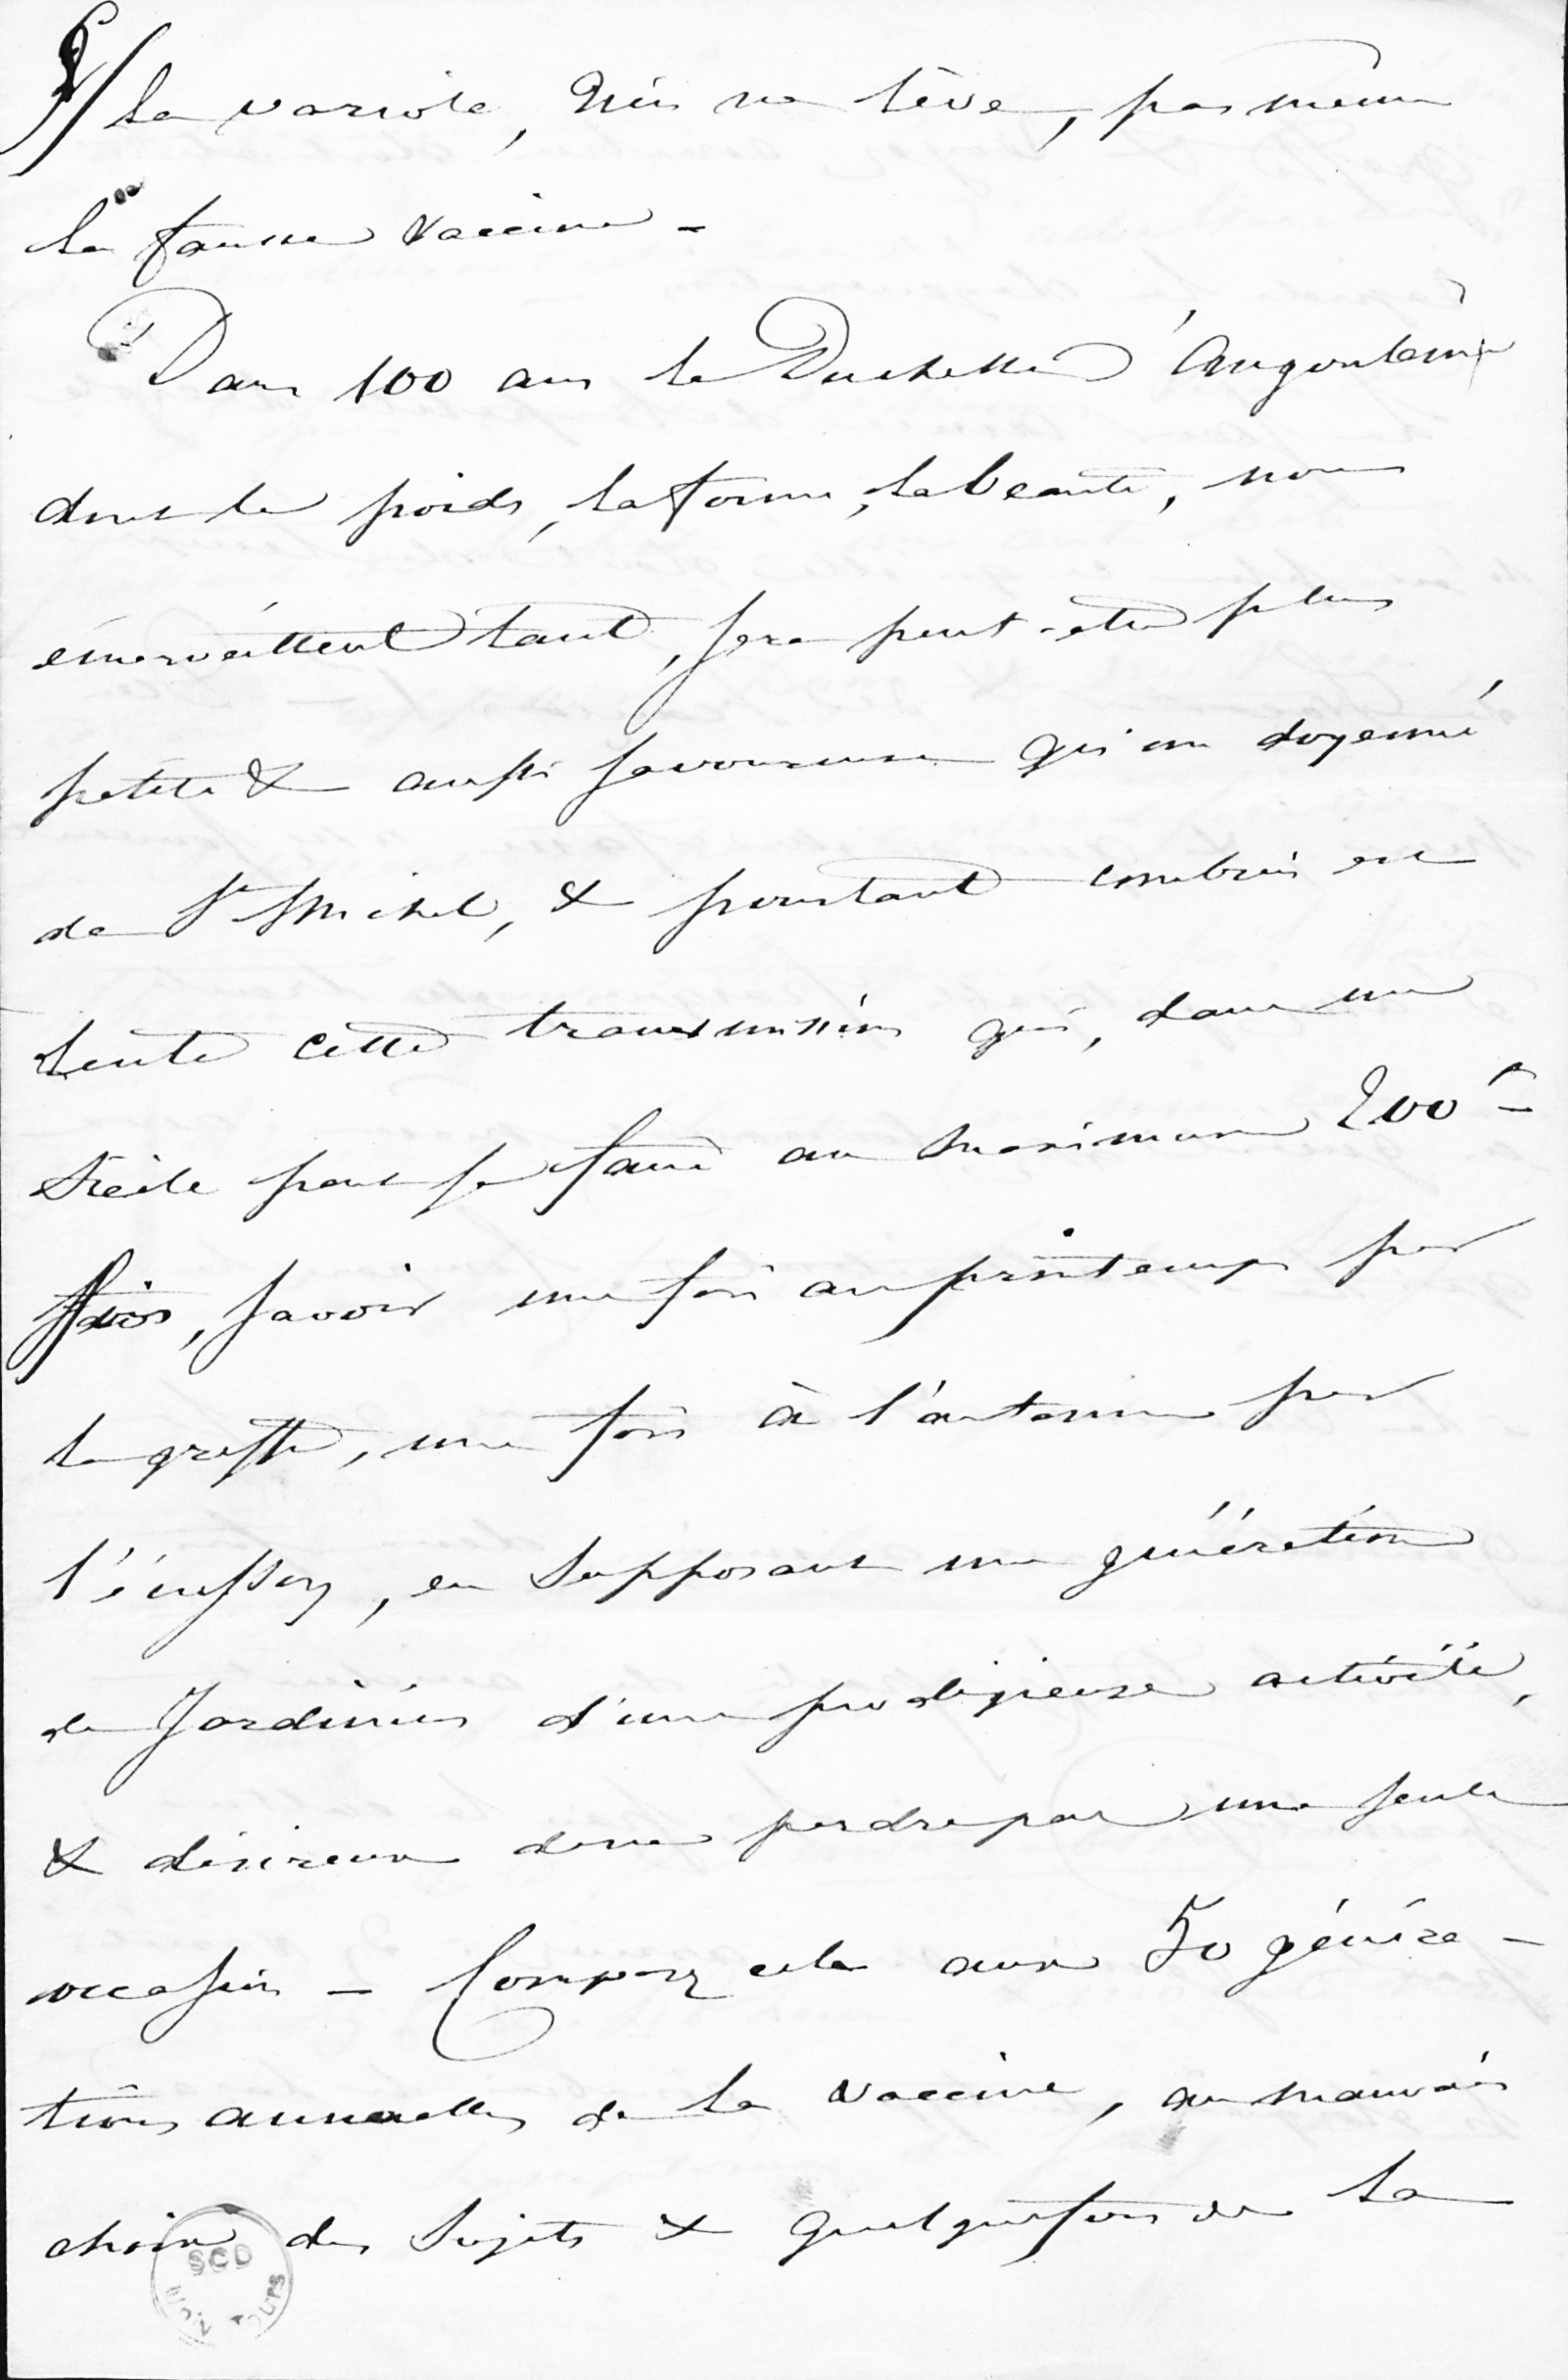 la variole, rien ne lève, pas même
la fausse vaccine -
Dans 100 ans la Duchesse d'Angoulême
dont le poids, la forme, la beauté, nous
émerveillent tant, sera peut-être plus
petite & aussi savoureuse qu'un doyenné
de St Michel, & pourtant combien est
lente cette transmission qui, dans un
siècle peut se faire au maximum 200 -
fois, savoir une fois au printemps par
la greffe, une fois à l'automne par
l'écusson, en supposant une génération
de Jardiniers d'une prodigieuse activité,
& désireux de ne perdre pas une seule
occasion - Comparez cela aux 50 généra -
tions annuelles de la vaccine, au mauvais
choix des sujets & quelquefois de la
SCD
TOURS